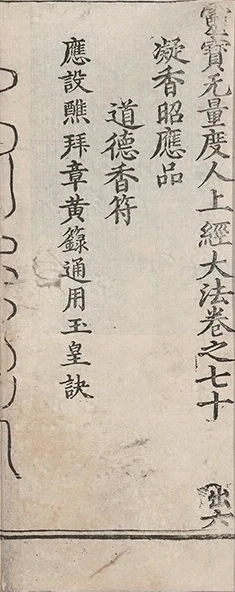 靈寶无量度人上經大法卷之七十 出六
凝香昭應品
道德香符
應設醮拜章黃籙通用玉皇訣